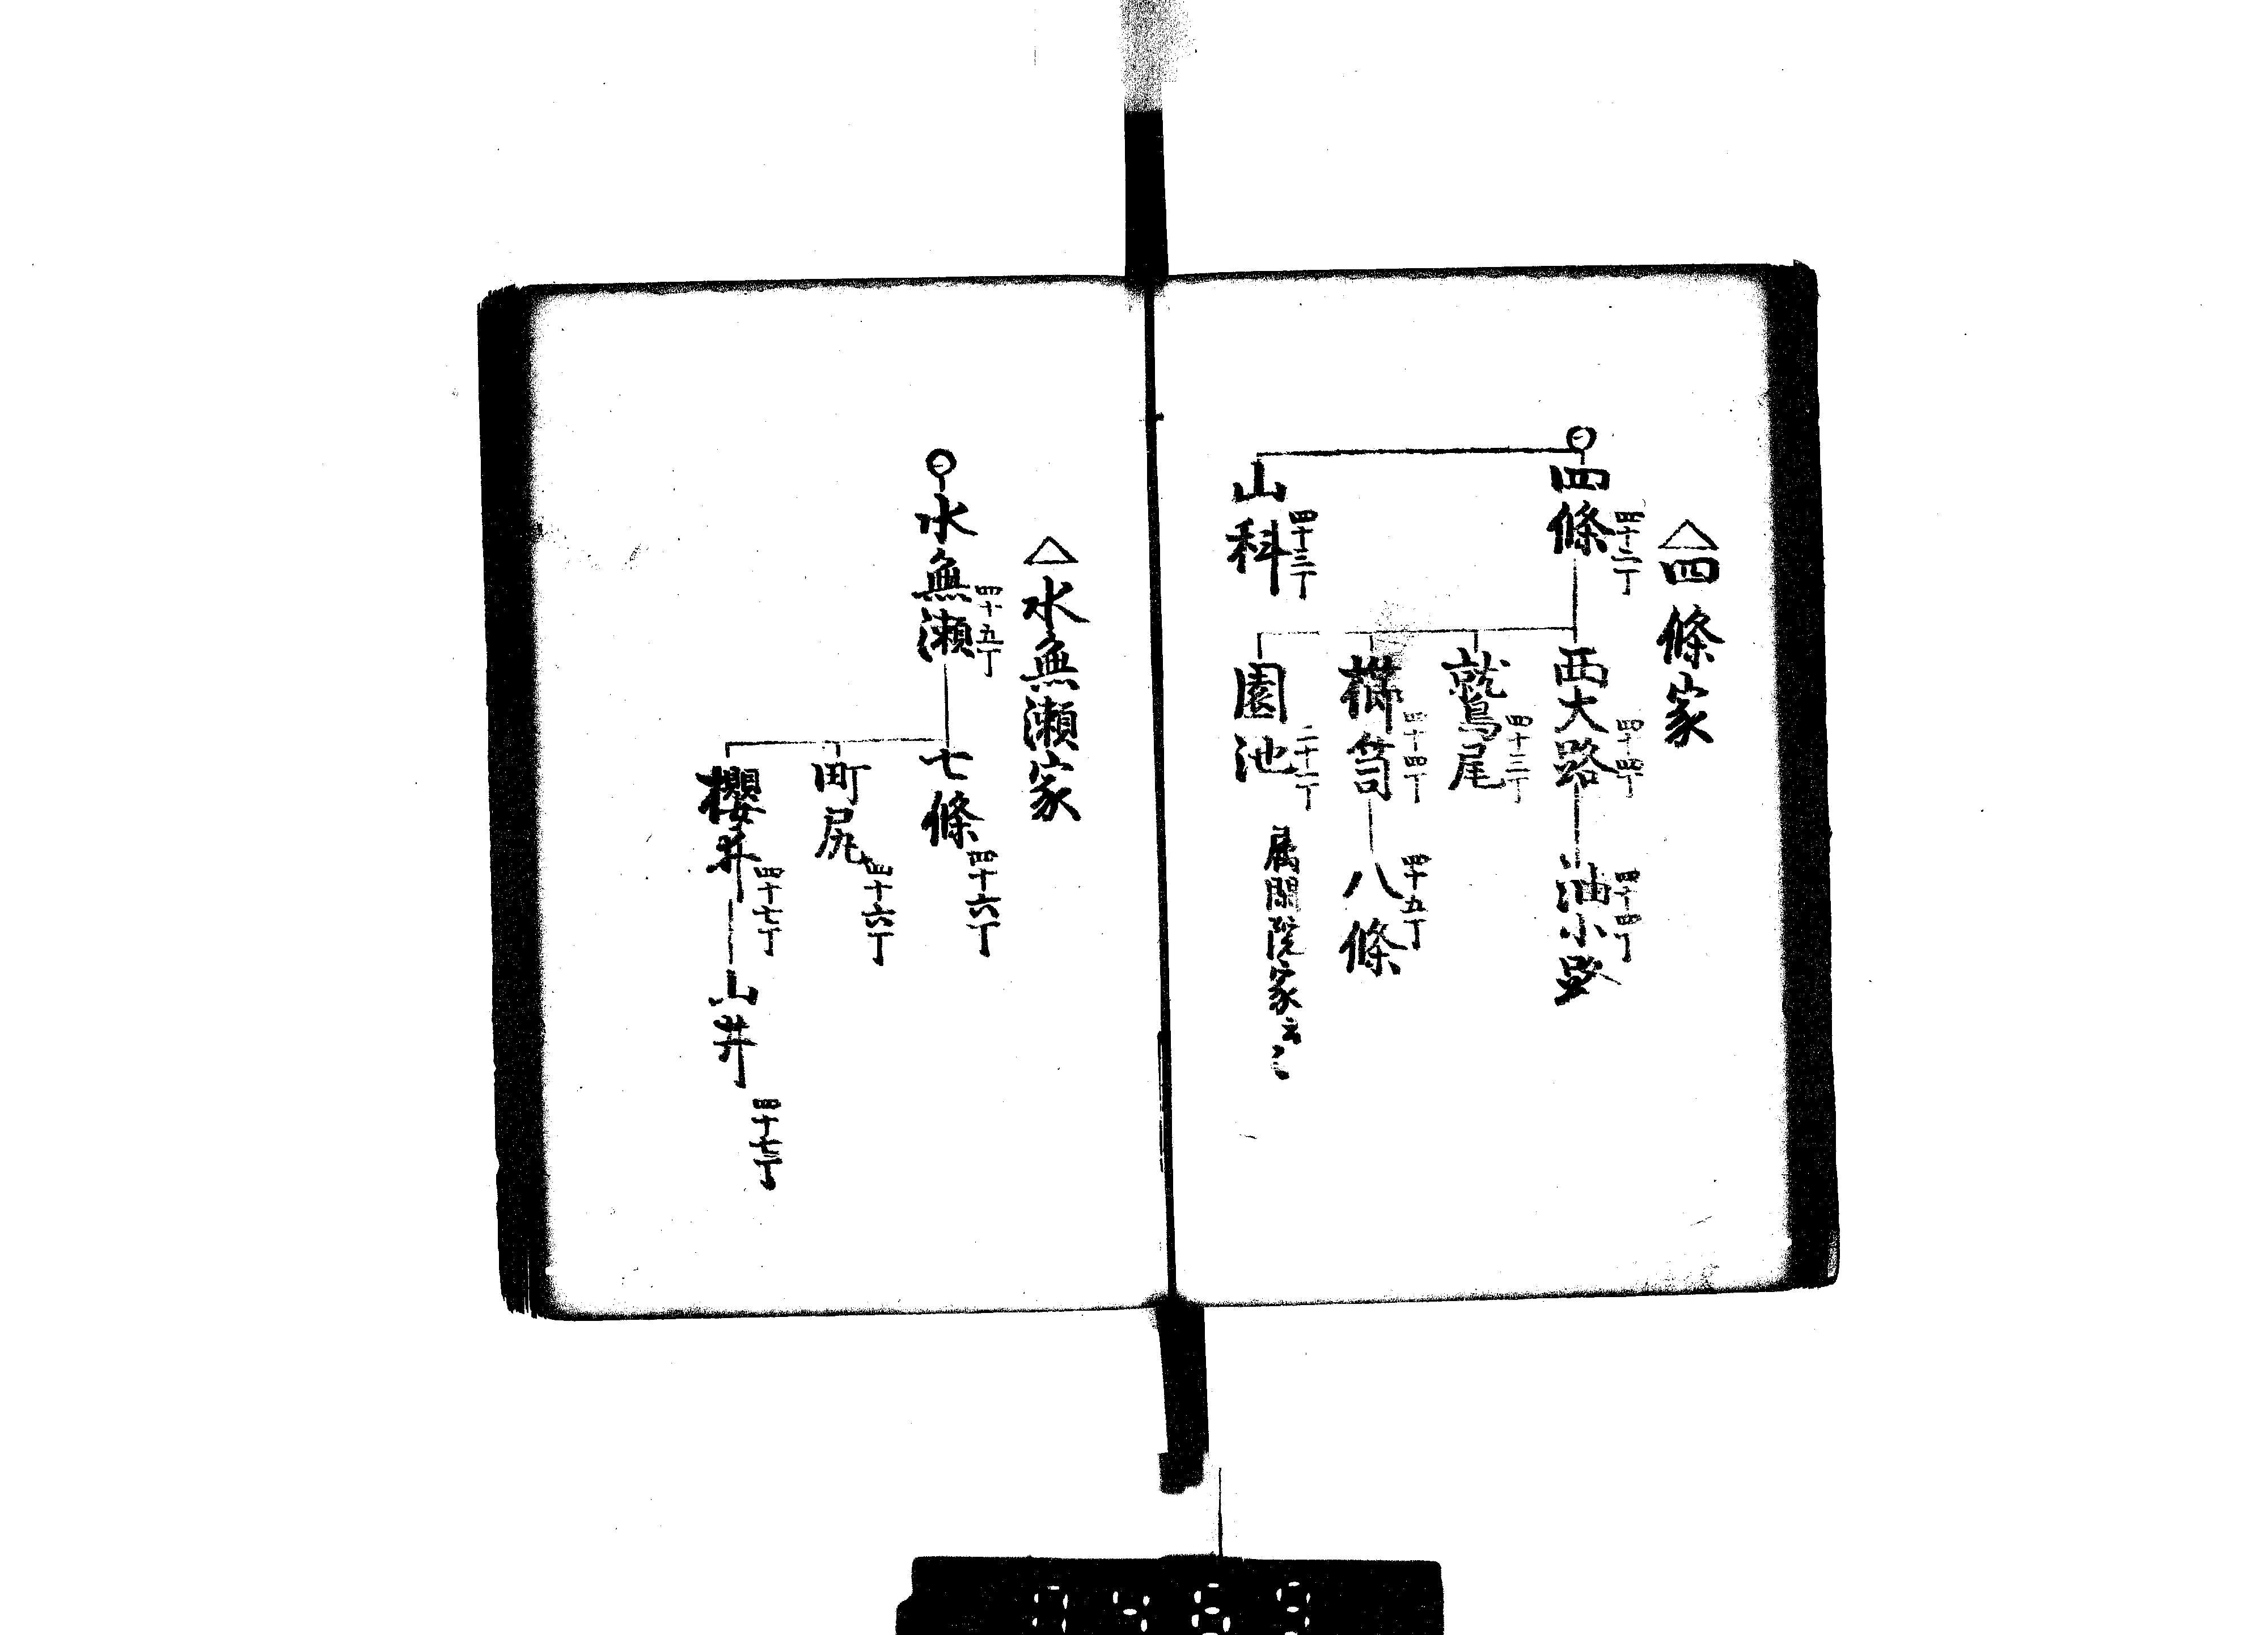 △四條家
四條 四十二丁
西大路 四十四丁
油小路 四十四丁
鷲尾 四十三丁
櫛笥 四十四丁
八條 四十五丁
山科 四十三丁
園池 二十一丁
属閑院家云々
△水無瀬家
水無瀬 四十五丁
七條 四十六丁
町尻 四十六丁
櫻井 四十七丁
山井 四十七丁